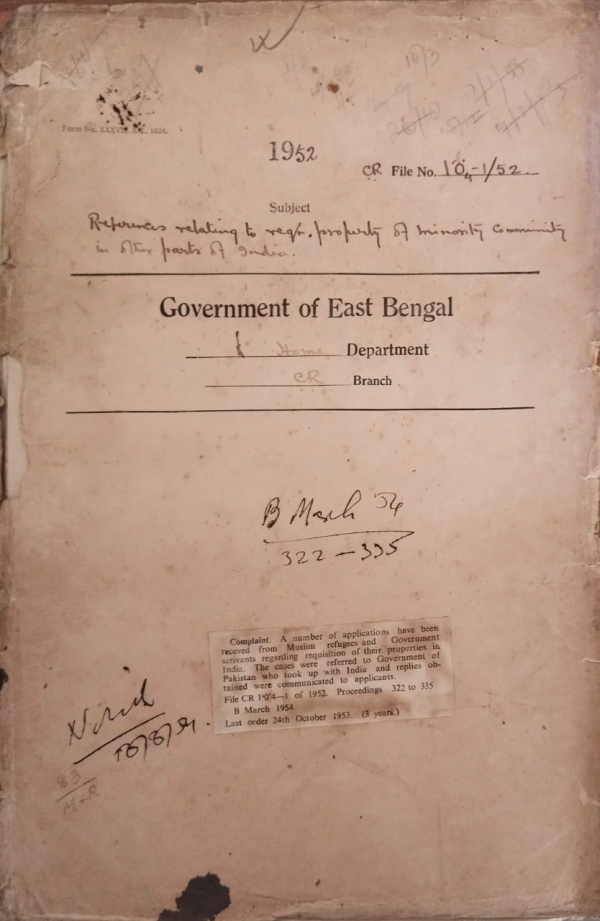 1952
CR File No. 10,4-1/52.
Subject
References relating to reqn. property of minority Community
in other parts of India.
Government of East Bengal
Home Department
CR Branch
B March 54
322 — 335
Complaint. A number of applications have been
receved from Muslim refugees and Government
servants regarding requisition of their properties in
India. The cases were referred to Government of
Pakistan who took up with India and replies ob-
tained were communicated to applicants.
File CR 1·0·4—1 of 1952. Proceedings 322 to 335
B March 1954
Last order 24th October 1953. (3 years.)
83
M+R